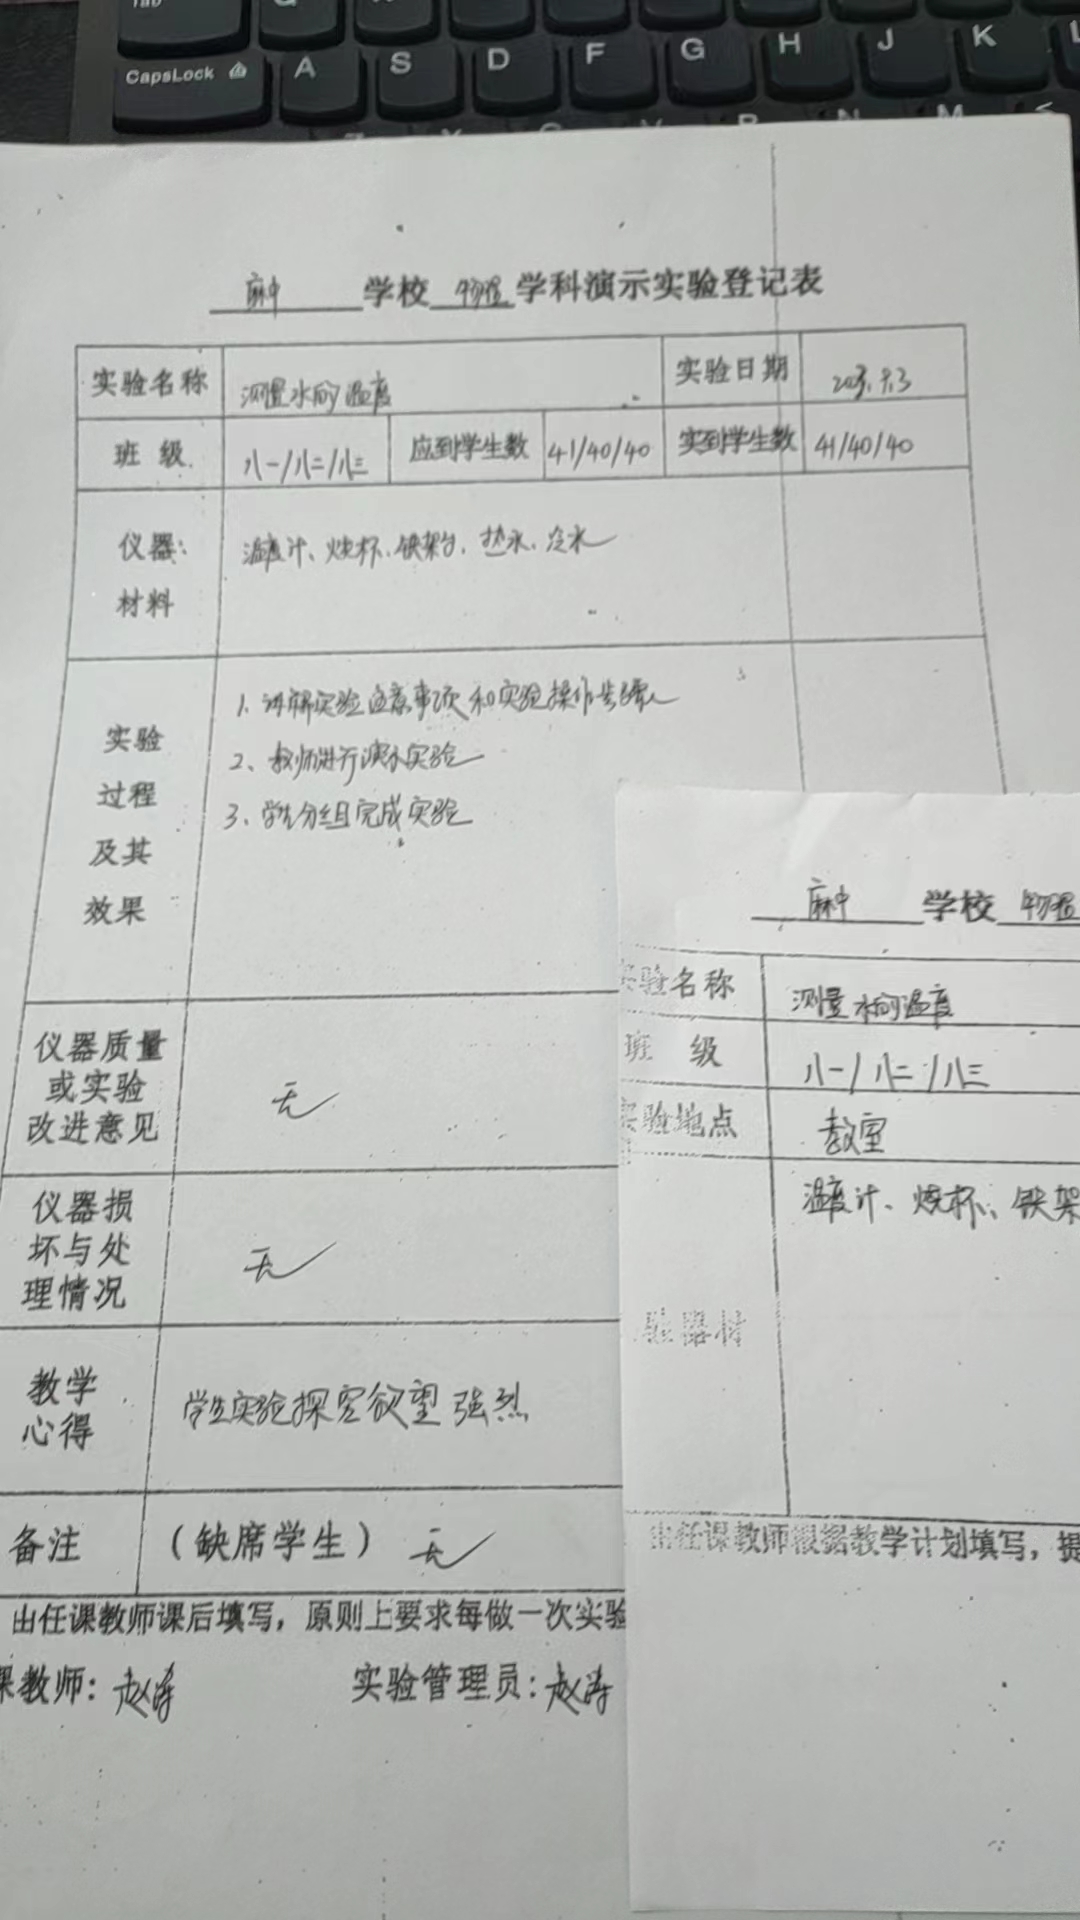 Tab
CapsLock A S D F G H J K L
麻中 学校 物理 学科演示实验登记表
实验名称 测量水的温度 实验日期
班 级 八一/八二/八三 应到学生数 41/40/40 实到学生数 41/40/40
仪器:
材料
温度计、烧杯、铁架台、热水、冷水
实验
过程
及其
效果
1、讲解实验注意事项和实验操作步骤
2、教师进行演示实验
3、学生分组完成实验
仪器质量
或实验
改进意见
无
仪器损
坏与处
理情况
无
教学
心得
学生实验探究欲望强烈
备注 (缺席学生) 无
由任课教师课后填写，原则上要求每做一次实验
课教师: 赵涛 实验管理员: 赵涛
麻中 学校 物理
实验名称 测量水的温度
班 级 八一/八二/八三
实验地点 教室
验器材 温度计、烧杯、铁架
由任课教师根据教学计划填写，提